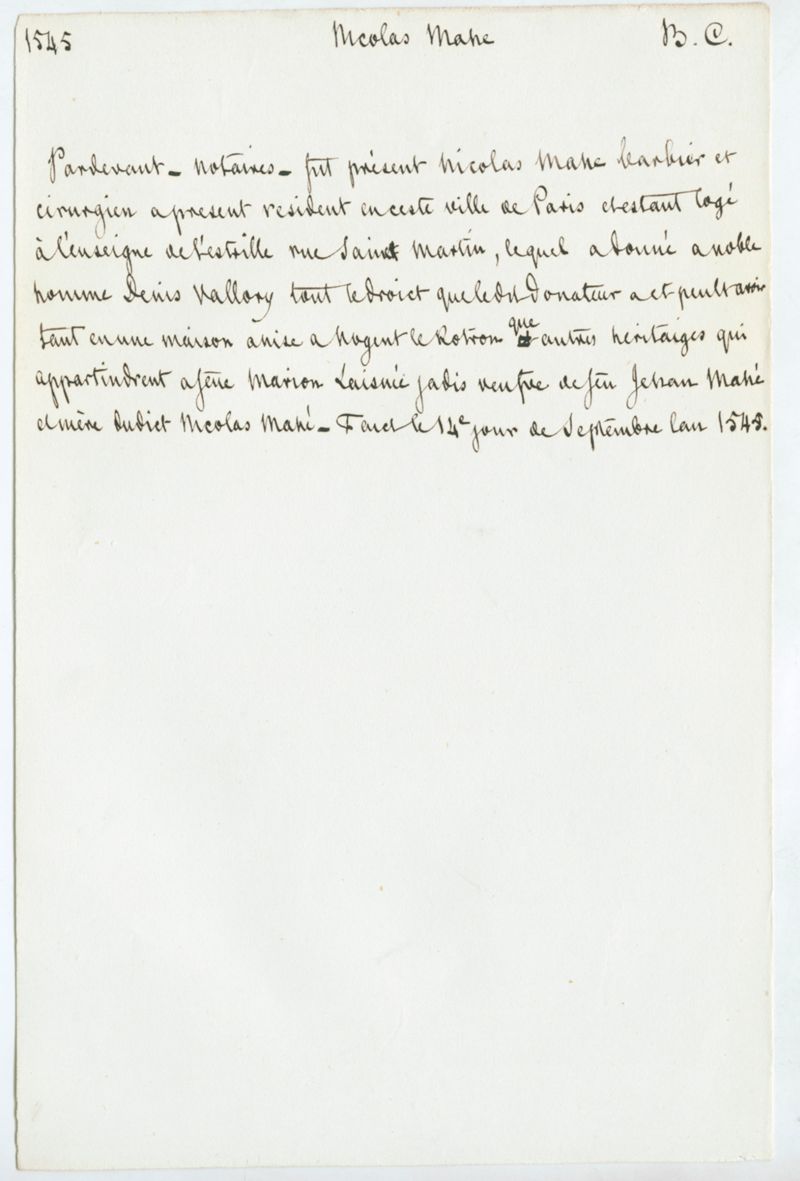 1545 Nicolas Mahe B. C.
Pardevant - notaires - fut présent Nicolas Mahe barbier et
cirurgien a present resident en ceste ville de Paris et estant logé
à l'enseigne de l'estrille rue Saint Martin, lequel a donné a noble
homme Denis Vallory tout le droict que ledit Donateur a et peult avoir
tant en une maison assise a Nogent le Rotrou que autres heritaiges qui
appartindrent a feue Marion Laisnée jadis veufve de feu Jehan Mahé
et mère dudict Nicolas Mahé - Faict le 14e jour de Septembre lan 1545.